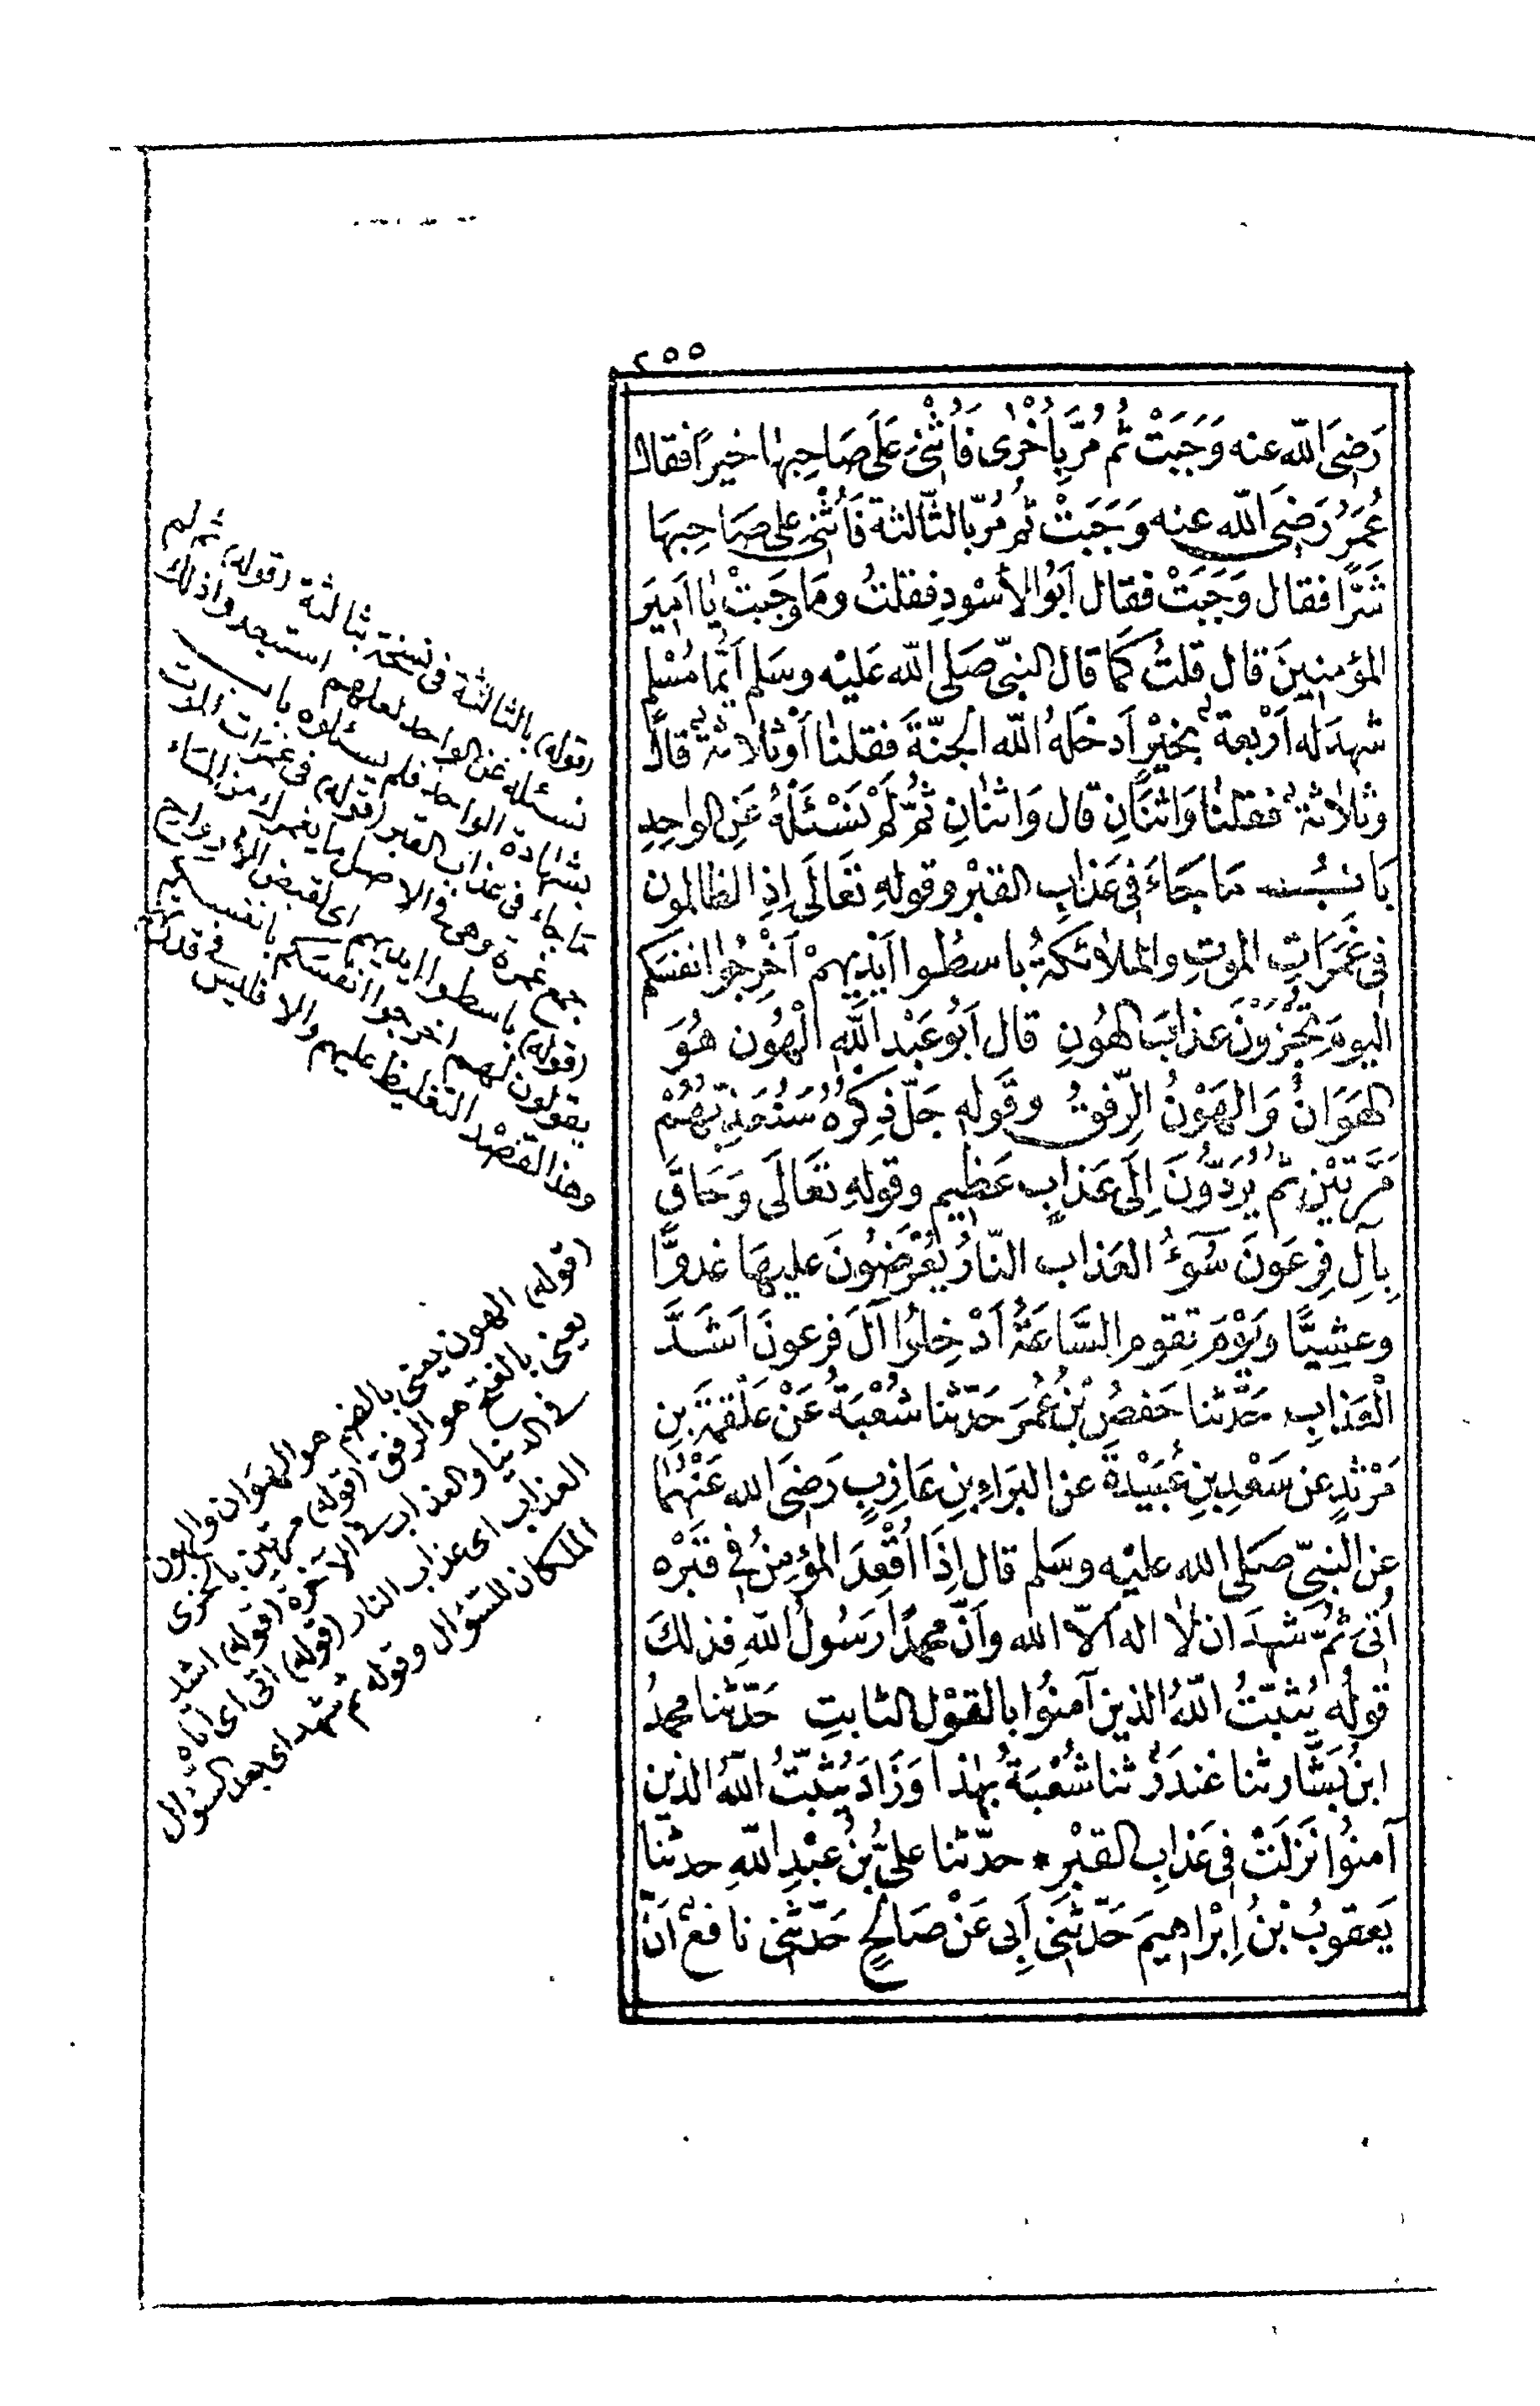 ٢٥٥
رَضِىَ اللّٰه عنه وَجَبَتْ ثُم مُرَّ بِأُخْرٰى فَأُثْنِىَ عَلَى صَاحِبِهٰا خيرًا فقال
عُمَرُ رَضِىَ اللّٰه عنه وَجَبَتْ ثُم مُرّ بالثّالثة فَأُثْنِىَ على صَاحِبِهَا
شَرًّا فقال وَجَبَتْ فقال اَبُو الأسْودِ فقلتُ ومَا وجَبتْ يٰا اَمِيرَ
المؤمنِينَ قال قلتُ كمَا قال النبىّ صَلى اللّٰه عَليْه وسَلم اَيُّمَا مُسْلِم
شهدَ له اَرْبعة بخيْرٍ اَدخَلهُ اللّٰه الجنّةَ فقلنٰا اَوْ ثلاثة قال
وثلاثة فقلنٰا وَاثنَانِ قال وَاثنٰانِ ثُمّ لَمْ نَسْئَلْهُ عَنِ الواحِدِ
بَابُ مَا جَاءَ فى عَذابِ القبْر وقولِهِ تَعَالَى اِذِ الظالمون
فى غَمَرَاتِ الموتِ والملائكةُ باسطُوا اَيْدِيهِمْ اَخْرِجُوا انفسَكم
اليومَ تُجْزَوْنَ عذابَ الهُونِ قال اَبُو عَبْد اللَّهِ الْهُون هُوَ
الهَوَانُ وَالهَوْنُ الرِّفقُ وقَوله جَلّ ذِكرُهُ سَنُعَذِّبُهُمْ
مَرَّتَيْنِ ثُم يُرَدُّونَ اِلَى عَذابٍ عَظِيمٍ وقولِهِ تَعَالَى وَحَاقَ
بِآلِ فِرعَونَ سُوءُ العَذاب النّارُ يُعْرَضُونَ عليهَا غدوًّا
وعشِيًّا وَيَوْمَ تقوم السَّاعَةُ اَدْخِلُوا آلَ فرعونَ اَشَدَّ
الْعَذابِ حَدَّثنا حَفصُ بْنُ عُمَرَ حَدّثنا شُعْبَةُ عَنْ عَلْقمَةَ بنِ
مَرْثدٍ عن سَعْدِ بنِ عُبَيْدةَ عن البَراءِ بنِ عَازِبٍ رَضِىَ الله عَنْهُمَا
عن النبىّ صَلى الله عليْه وسَلم قال اِذَا اُقْعِدَ المؤمِنُ فى قبْرِه
اُتِىَ ثُمّ شهدَ ان لا اله الّا الله وأنّ محمدًا رَسُولُ اللّٰهِ فذلكَ
قولُه يُثبّتُ اللّٰهُ الذين آمنُوا بالقوْل الثابتِ حَدّثنا محمدُ
ابنُ بَشّار ثنا غندَرٌ ثنا شُعْبَةُ بهٰذا وَزَادَ يُثبّتُ اللّٰهُ الذين
آمنُوا نَزَلَتْ فى عَذابِ القبْرِ * حدّثنا علىُّ بْنُ عَبْدِ اللّٰهِ حدثنا
يَعقوبُ بْنُ اِبْرَاهِيمَ حَدّثَنى اَبِى عَنْ صَالحٍ حَدّثَنى نافعٌ اَنّ
(قوله) بالثالثة فى نسخة بثالثة (قوله) ثم لم
نسئله عن الواحد لعلهم استبعدوا ذلك
بشهادة الواحد فلم يسئلوه باب
ما جاء فى عذاب القبر (قوله) فى غمرات الموت
جمع غمرة وهى فى الاصل ما يغمرك من الماء
(قوله) باسطوا ايديهم اى لقبض الارواح
يقولون لهم اخرجوا انفسكم بانفسكم
وهذا القصْد التغليظ عليهم والا فليس فى قدرتهم
(قوله) الهون يعنى بالضم هو الهوان والهون
يعنى بالفتح هو الرفق (قوله) مرتين بالخزى
فى الدنيا والعذاب فى الآخرة (قوله) اشد
العذاب اى عذاب النار (قوله) اتى اى اتاه
الملكان للسّؤال وقوله ثم شهد اى بعد السّؤال